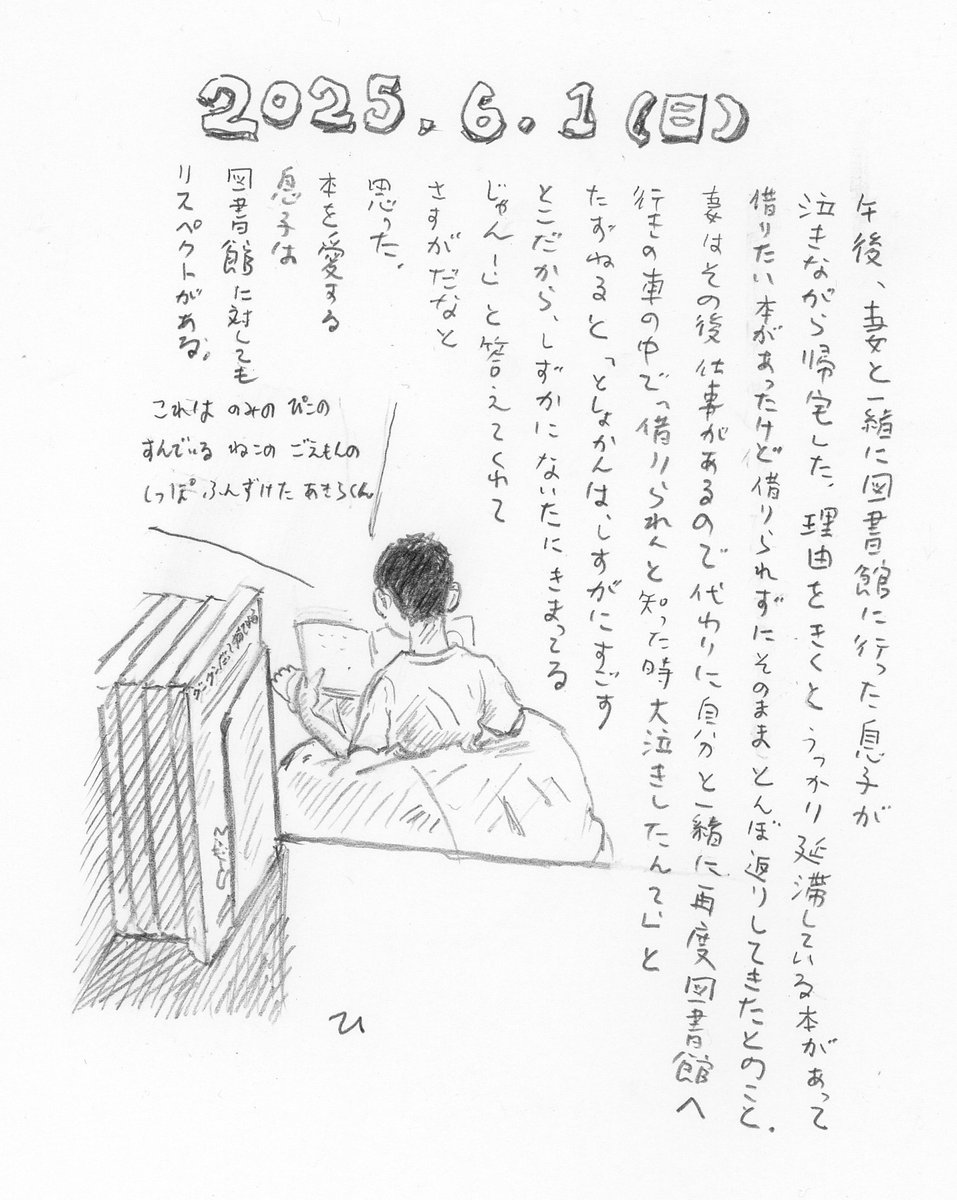 2025.6.1(日)
午後、妻と一緒に図書館に行った息子が
泣きながら帰宅した。理由をきくとうっかり延滞している本があって
借りたい本があったけど借りられずにそのままとんぼ返りしてきたとのこと。
妻はその後仕事があるので代わりに自分と一緒に再度図書館へ
行きの車の中で「借りられんと知った時大泣きしたんて」と
たずねると「としょかんは、しずかにすごす
とこだから、しずかにないたにきまってる
じゃんー」と答えてくれて
さすがだなと
思った。
本を愛する
息子は
図書館に対しても
リスペクトがある。
これは のみの ぴこの
すんでいる ねこの ごえもんの
しっぽ ふんずけた あきらくん
ひ